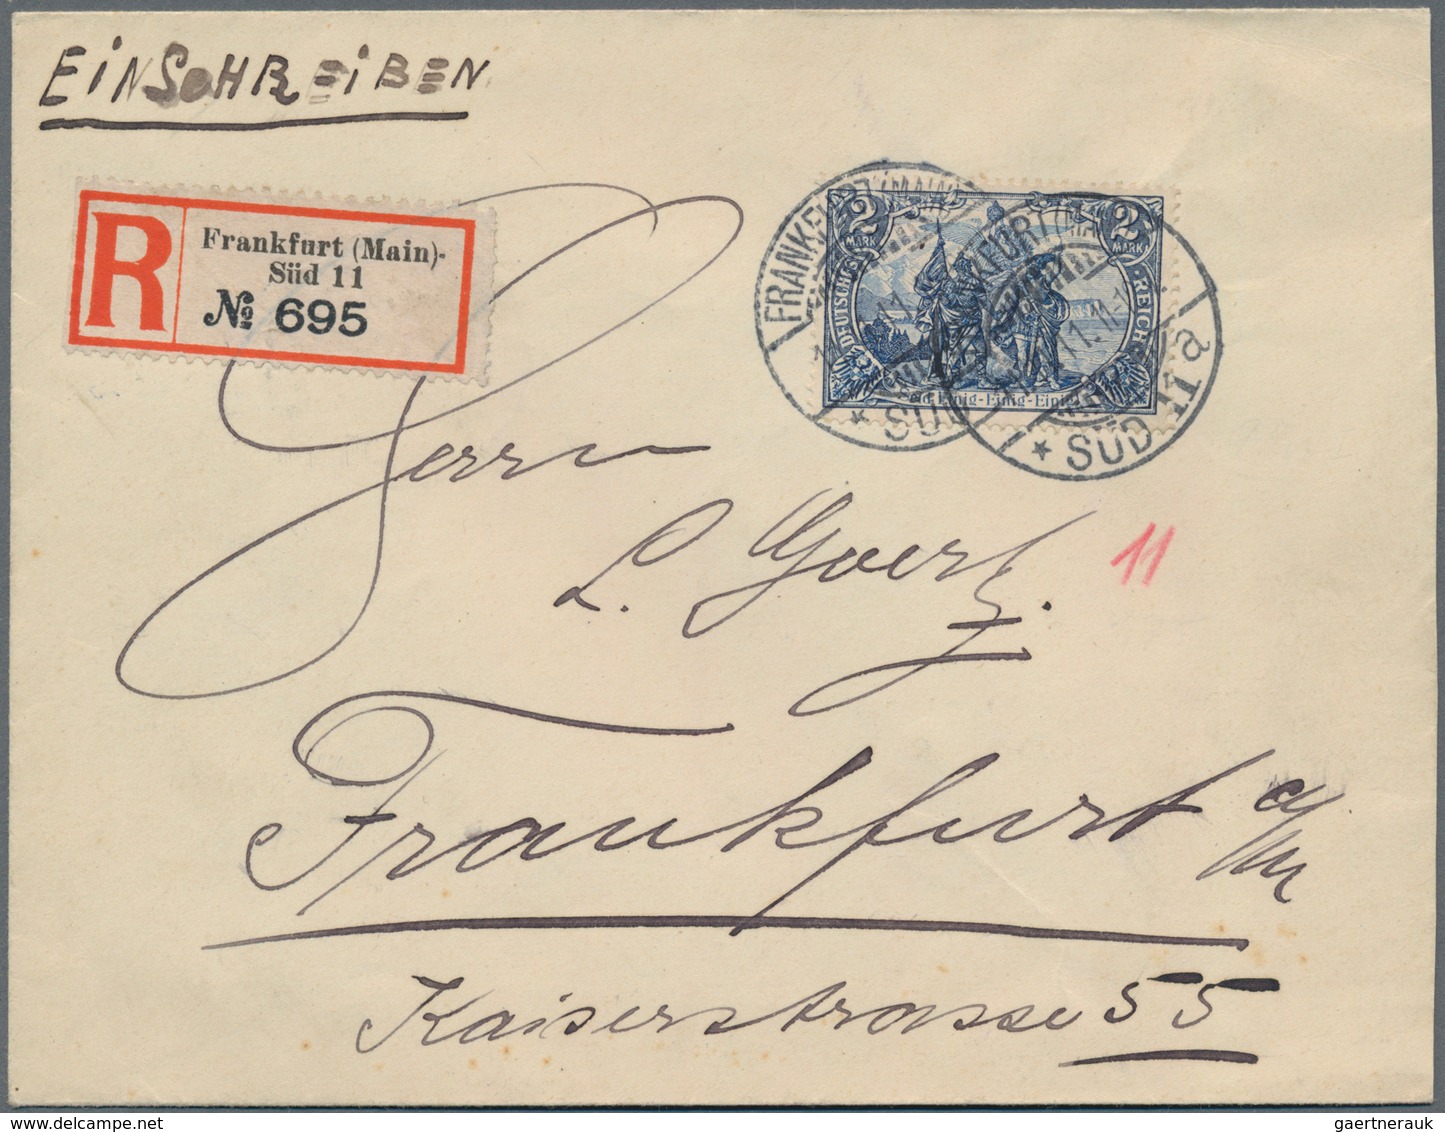 EINSCHREIBEN
R
Frankfurt (Main)-
Süd 11
№ 695
FRANKFURT (MAIN)
* SÜD
FRANKFURT (MAIN)
* SÜD 11a
2 MARK
2 MARK
DEUTSCHES REICH
Seid Einig-Einig-Einig
Herrn
L. Goertz.
11
Frankfurt a/M
Kaiserstrasse 55
gaertnerauk